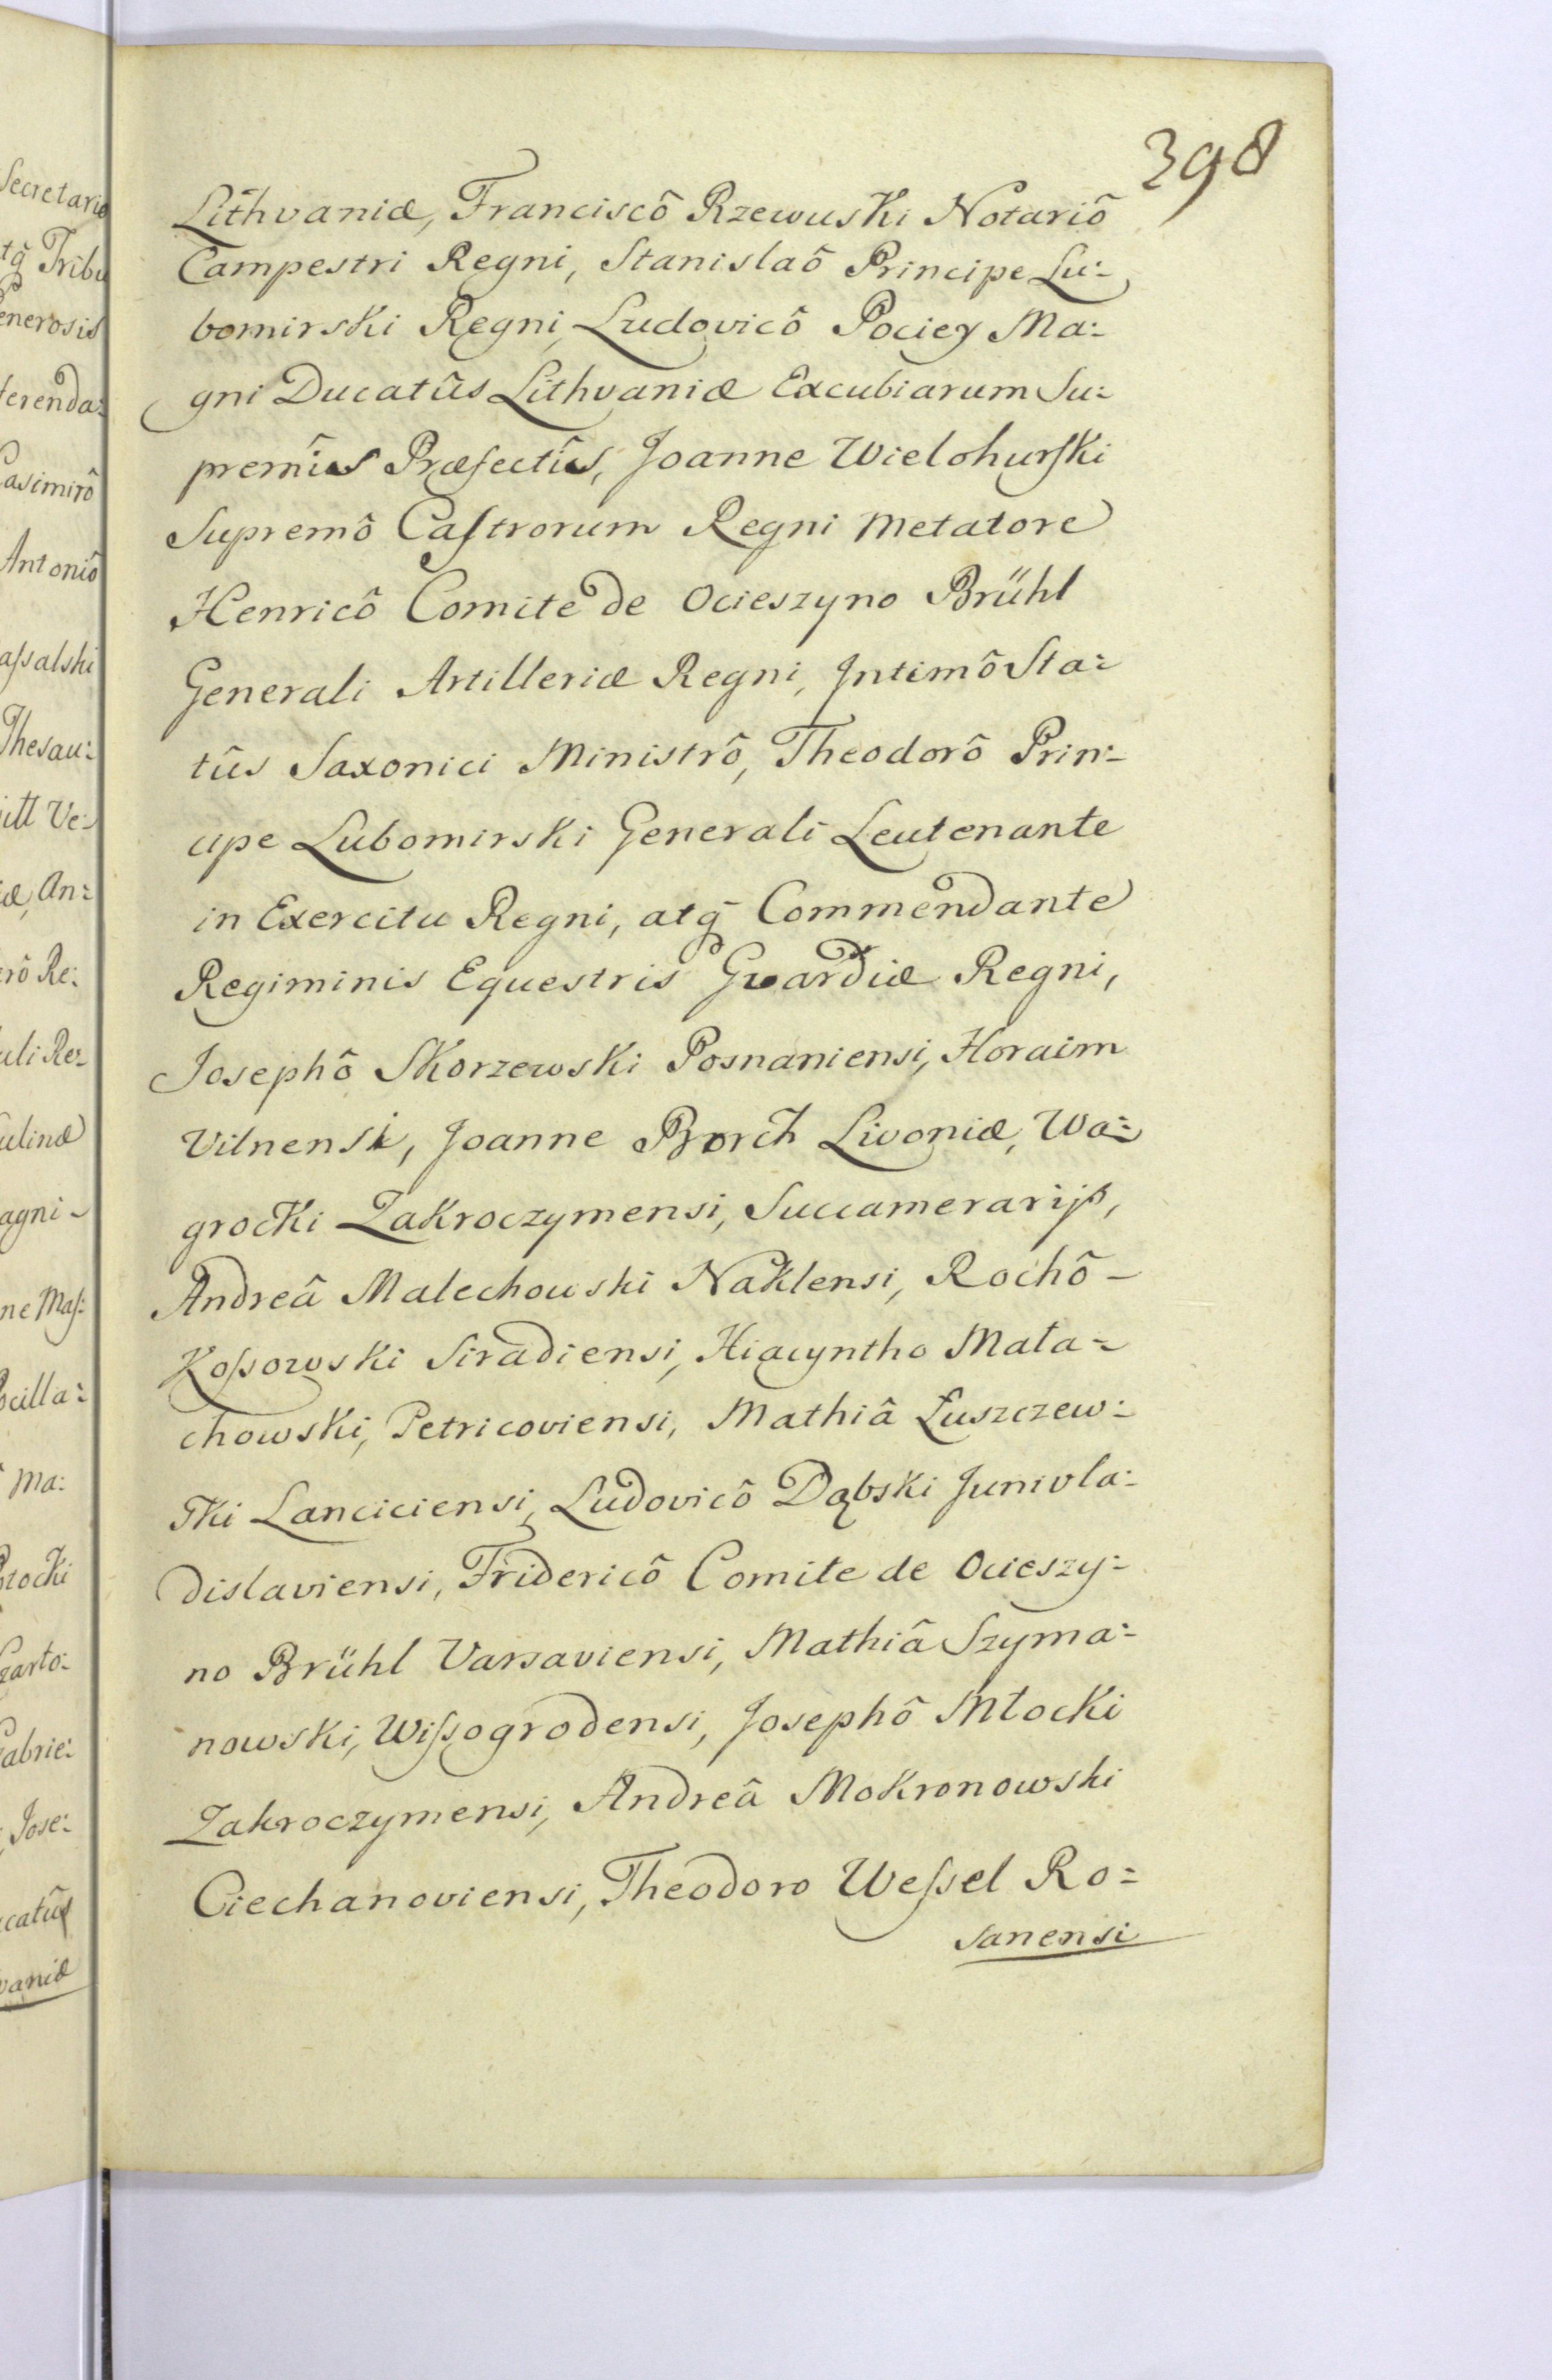 398
Lithvaniæ, Franciscô Rzewuski Notariô
Campestri Regni, Stanislaô Principe Lu:
bomirski Regni, Ludovicô Pociey Ma:
gni Ducatûs Lithvaniæ Excubiarum Su:
premîs Præfectîs, Joanne Wielohurſki
Supremô Caſtrorum Regni Metatore
Henricô Comite de Ocieszyno Brühl
Generali Artilleriæ Regni, Intimô Sta:
tûs Saxonici Ministrô, Theodorô Prin:
cipe Lubomirski Generali Leutenante
in Exercitu Regni, atq̃ Commendante
Regiminis Equestris Gvardiæ Regni,
Josephô Skorzewski Posnaniensi, Horaim
Vilnensi, Joanne Borch Livoniæ, Wa:
grocki Zakroczymensi, Succamerarijs,
Andreâ Malechowski Naklensi, Rochô –
Koſsowski Siradiensi, Hiacyntho Mała:
chowski, Petricoviensi, Mathiâ Łuszczew:
ski Lanciciensi, Ludovicô Dąbski Junivla:
dislaviensi, Fridericô Comite de Ocieszy:
no Brühl Varsaviensi, Mathiâ Szyma:
nowski, Wiſsogrodensi, Josephô Młocki
Zakroczymensi, Andreâ Mokronowski
Ciechanoviensi, Theodoro Weſsel Ro:
sanensi
Secretario
tq̃ Tribu
enerosis
ferenda:
Casimirô
Antoniô
aſsalski
Thesau:
itt Ve:
æ, An:
rô Re:
uli Re:
ulinæ
agni –
ne Maſ:
ocilla:
Ma:
otocki
Czarto:
Gabrie:
Jose:
catûs
vaniæ